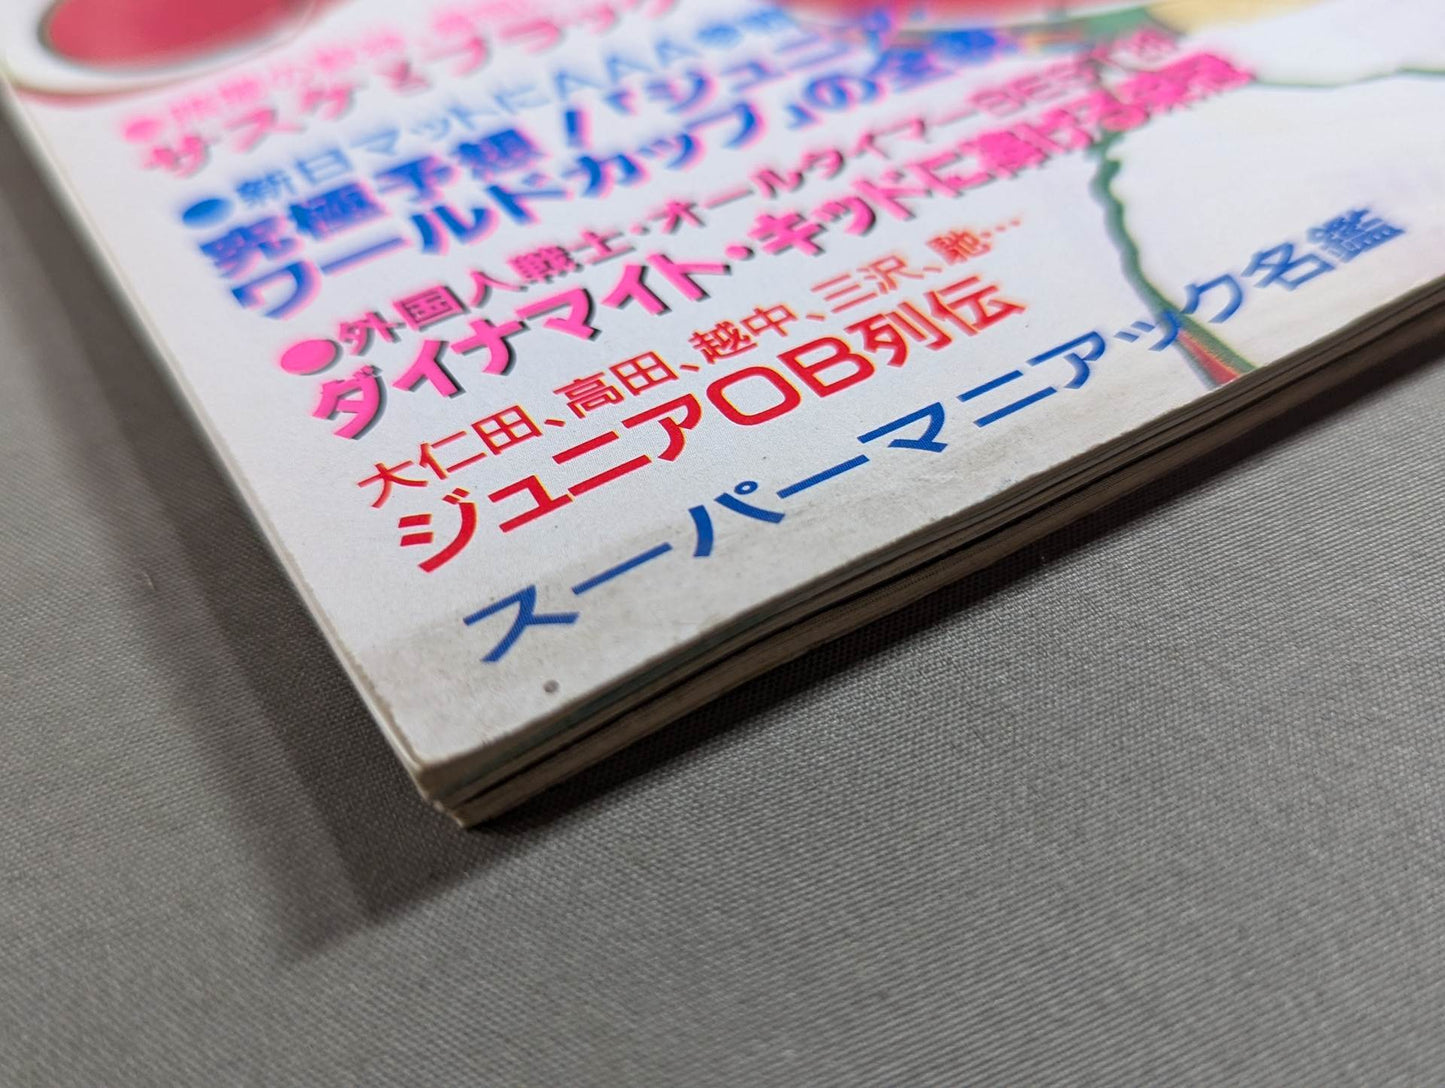 サスケとブラック
●新日マットにAAA参戦
究極予想!「ジュニア
ワールドカップ」の全貌
●外国人戦士・オールタイマーBEST18
ダイナマイト・キッドに捧げる栄冠
大仁田、高田、越中、三沢、馳…
ジュニアOB列伝
スーパーマニアック名鑑